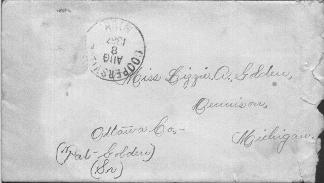 COOPERSVILLE
MICH
AUG
8
Miss Lizzie A. Golden,
Dennison,
Ottawa Co.-
Michigan.
("Pat-Golden)
(Sr)